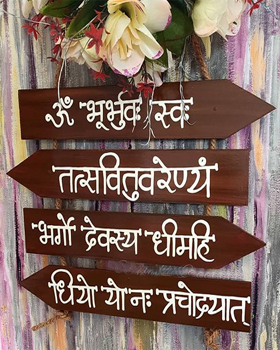 ॐ भूर्भुवः स्वः
तत्सवितुवरेण्यं
भर्गो देवस्य धीमहि
धियो यो नः प्रचोदयात्